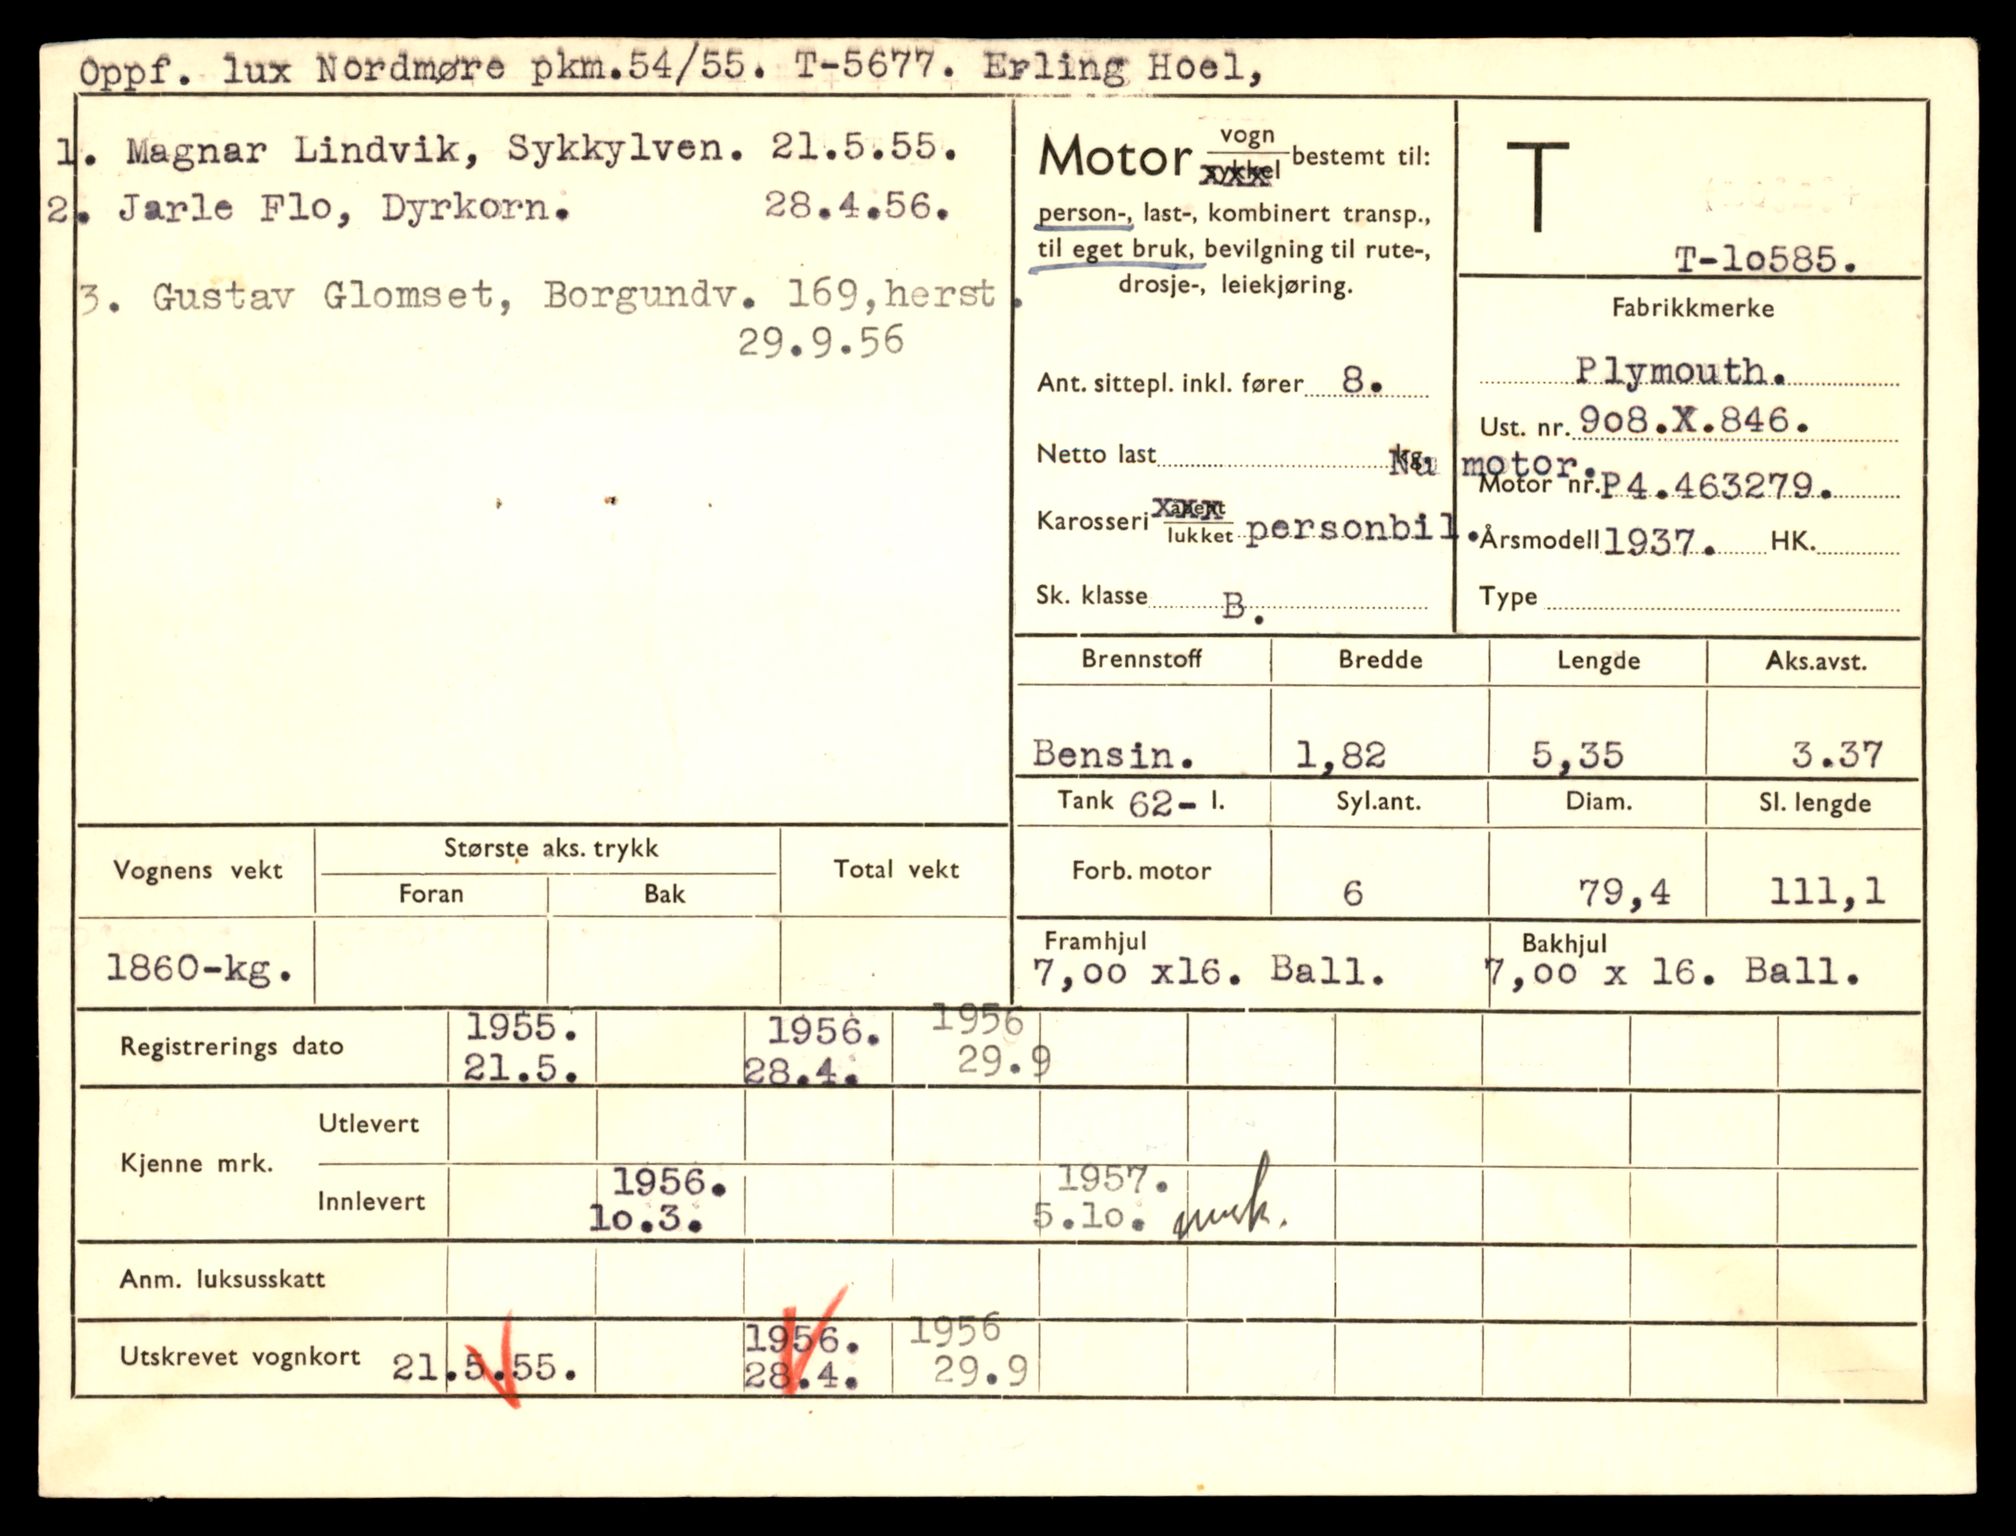 Oppf. lux Nordmøre pkm.54/55. T-5677. Erling Hoel,
1. Magnar Lindvik, Sykkylven. 21.5.55.
2. Jarle Flo, Dyrkorn. 28.4.56.
3. Gustav Glomset, Borgundv. 169,herst.
29.9.56
Motor vogn sykkel bestemt til:
person-, last-, kombinert transp.,
til eget bruk, bevilgning til rute-,
drosje-, leiekjøring.
Ant. sittepl. inkl. fører 8.
Netto last kg.
Karosseri åpent lukket personbil.
Sk. klasse B.
T
T-1o585.
Fabrikkmerke
Plymouth.
Ust. nr. 9o8.X.846.
Nu motor.
Motor nr. P4.463279.
Årsmodell 1937. HK.
Type
Brennstoff Bredde Lengde Aks.avst.
Bensin. 1,82 5,35 3.37
Tank 62- l. Syl.ant. Diam. Sl. lengde
Forb. motor 6 79,4 111,1
Framhjul Bakhjul
7,oo x16. Ball. 7,oo x 16. Ball.
Vognens vekt Største aks. trykk Total vekt
Foran Bak
1860-kg.
Registrerings dato 1955. 1956. 1956
21.5. 28.4. 29.9
Kjenne mrk. Utlevert
Innlevert 1956. 1957.
1o.3. 5.1o.
Anm. luksusskatt
Utskrevet vognkort 21.5.55. 1956. 1956
28.4. 29.9